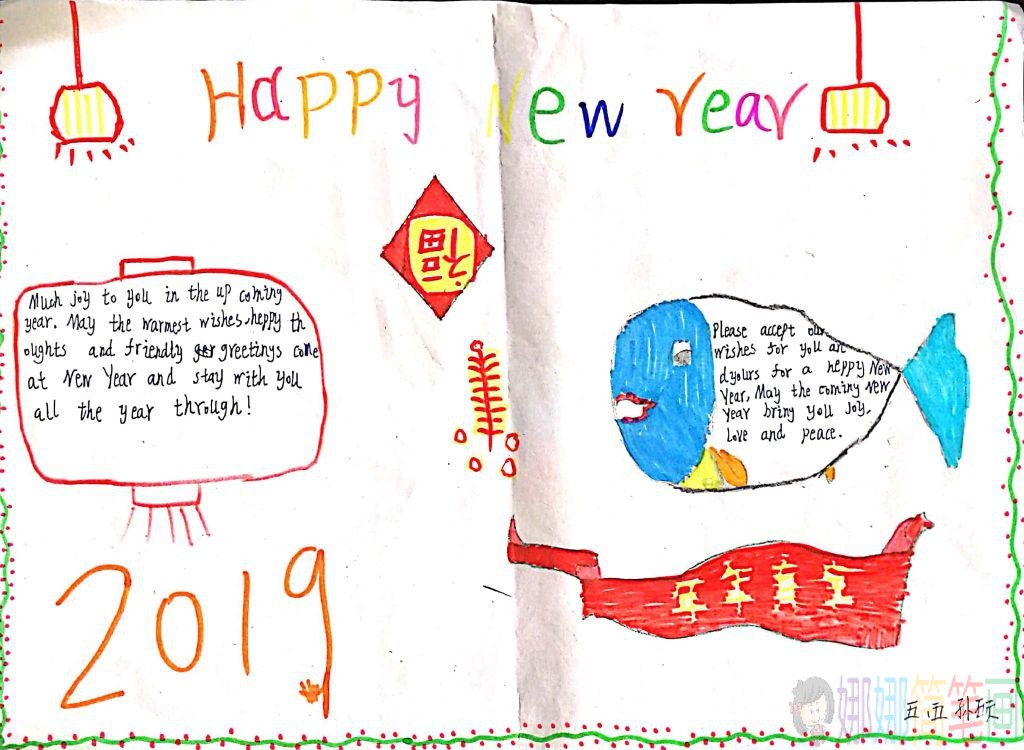 Happy New Year
福
Much joy to you in the up coming
year. May the warmest wishes, heppy th
oughts and friendly greetings come
at New Year and stay with you
all the year through!
Please accept our
wishes for you an
dyours for a heppy New
Year, May the coming new
year briny you joy,
Love and peace.
2019
年年有余
五五孙玩
娜娜简笔画